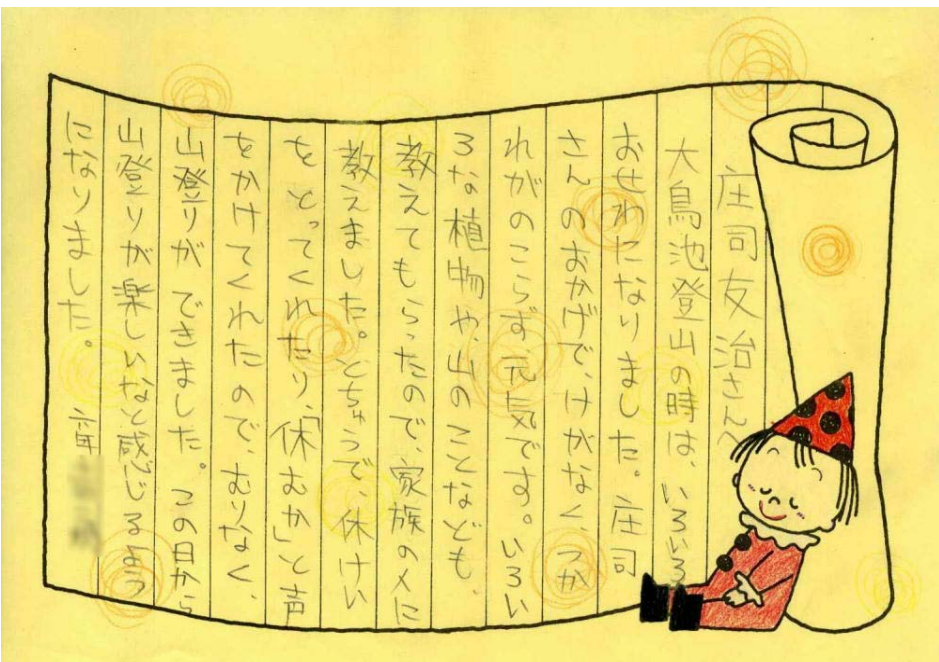 庄司友治さんへ
大鳥池登山の時は、いろいろ
おせわになりました。庄司
さんのおかげで、けがなく、つか
れがのこらず元気です。いろい
ろな植物や、山のことなども、
教えてもらったので、家族の人に
教えました。とちゅうで、休けい
をとってくれたり、「休むか」と声
をかけてくれたので、むりなく、
山登りができました。この日から
山登りが楽しいなと感じるよう
になりました。 六年